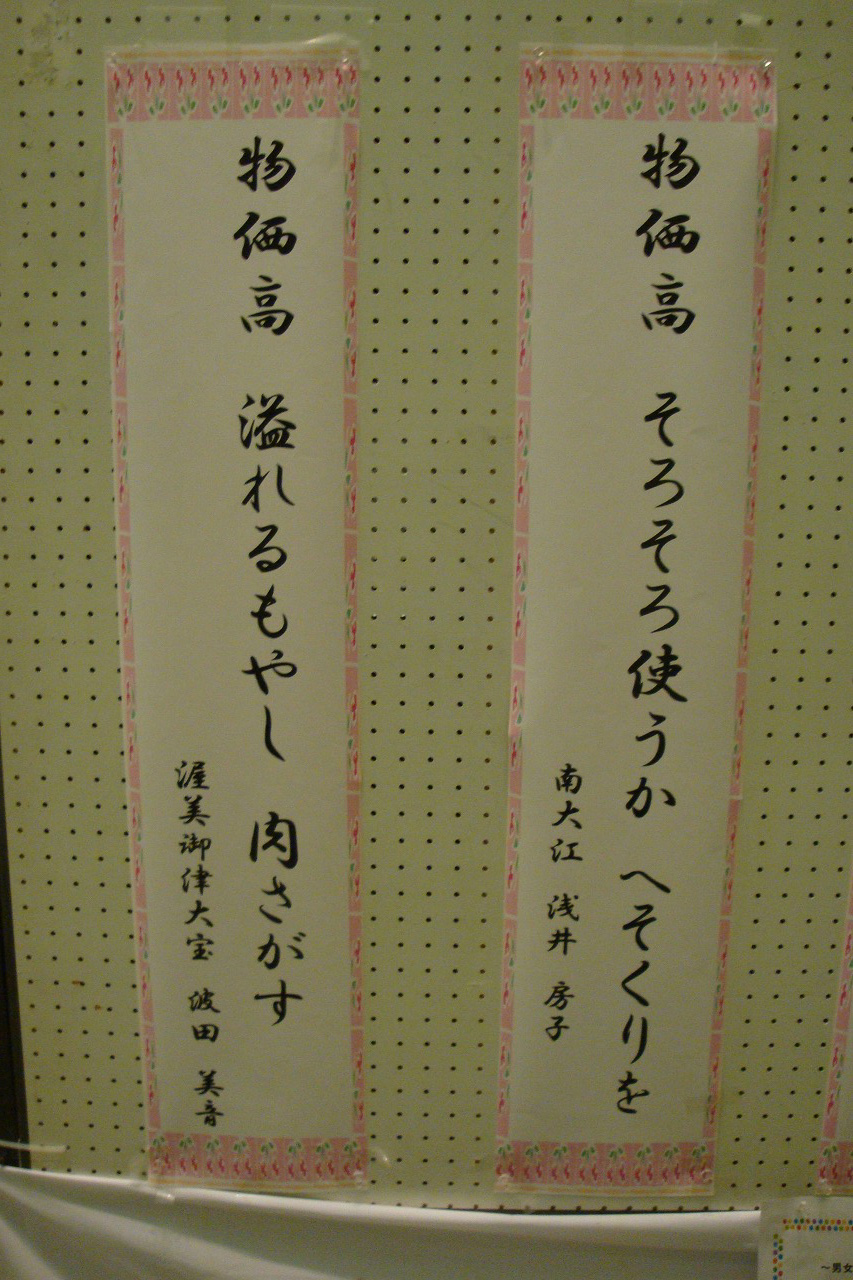 物価高　そろそろ使うか　へそくりを
南大江　浅井　房子
物価高　溢れるもやし　肉さがす
渥美御津大宝　波田　美音
～男女